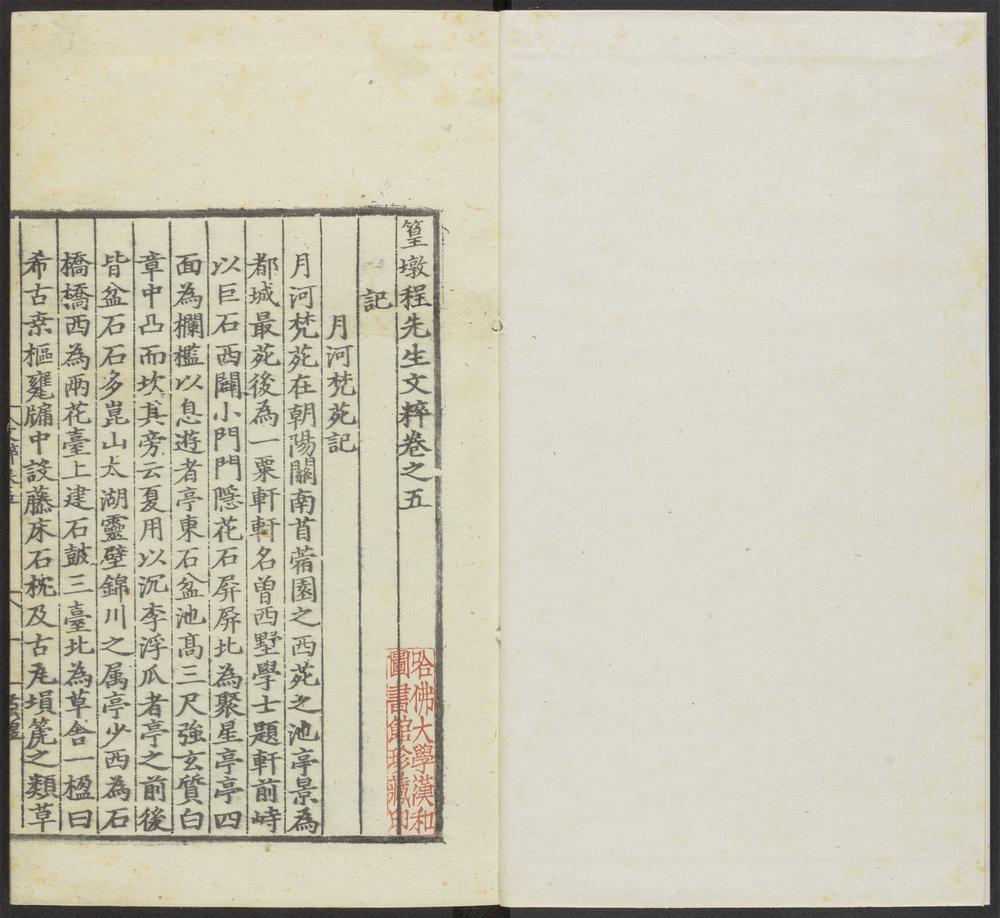 篁墩程先生文粹卷之五
記
月河梵苑記
月河梵苑在朝陽關南苜蓿園之西苑之池亭景為
都城最苑後為一粟軒軒名曾西墅學士題軒前峙
以巨石西闢小門門隱花石屏屏北為聚星亭亭四
面為欄檻以息遊者亭東石盆池高三尺強玄質白
章中凸而坎其旁云夏用以沉李浮瓜者亭之前後
皆盆石石多崑山太湖靈壁錦川之属亭少西為石
橋橋西為兩花臺上建石鼓三臺北為草舍一楹曰
希古桒樞甕牖中設藤床石枕及古尨塤篪之類草
哈佛大學漢和
圖書館珍藏印